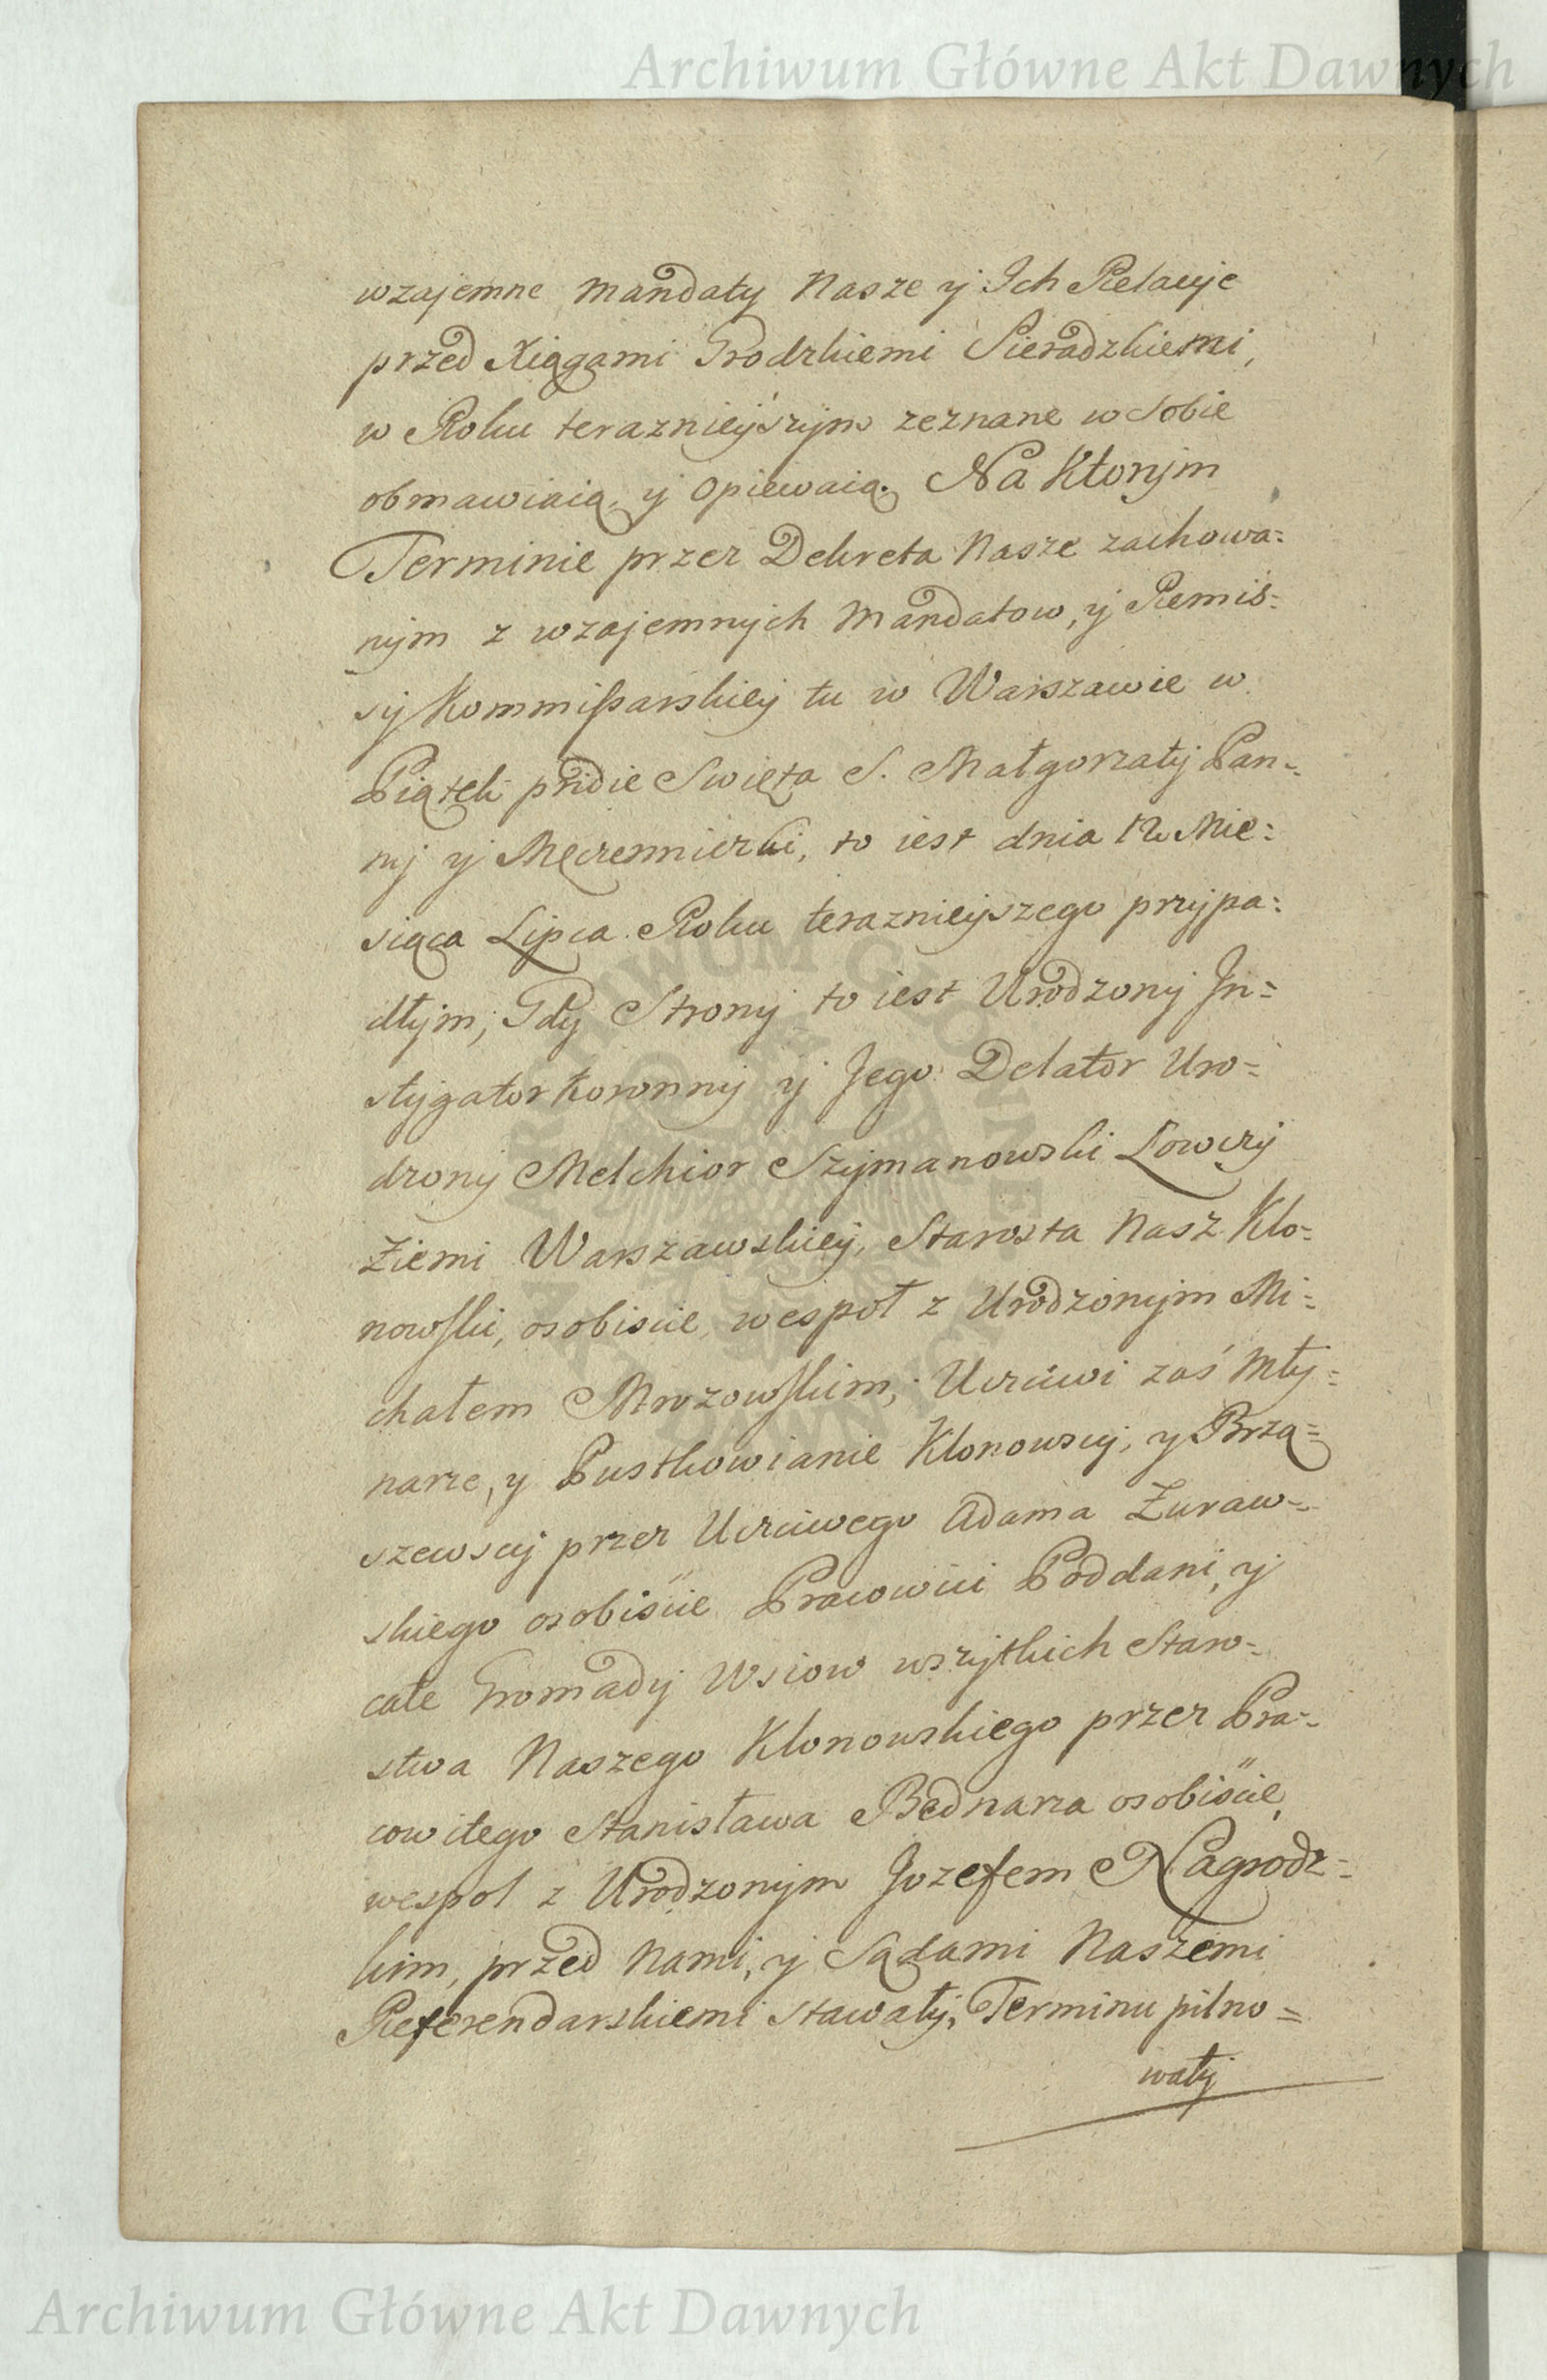 Archiwum Główne Akt Dawnych
wzajemne Mandaty Nasze y Ich Relacye
przed Xięgami Grodzkiemi Sieradzkiemi,
w Roku teraznieyszym zeznane w sobie
obmawiaią, y opiewaią. Na Ktorym
Terminie przez Dekreta Nasze zachowa=
nym z wzajemnych Mandatow, y Remis=
sy Kommißarskiey tu w Warszawie w
Piątek pridie Swięta S. Małgorzaty Pan=
ny y Męczenniczki, to iest dnia 12 Mie=
siąca Lipca Roku teraznieyszego przypa=
dłym, Gdy Strony to iest Urodzony In=
stygator Koronny y Jego Delator Uro=
dzony Melchior Szymanowski Łowczy
Ziemi Warszawskiey, Starosta Nasz Klo=
nowski, osobiscie, wespoł z Urodzonym Mi=
chałem Mrozowskim, Uczciwi zaś Mły=
narze, y Pustkowianie Klonowscy, y Brzą=
szewscy przez Uczciwego Adama Żuraw=
skiego osobiście Pracowici Poddani, y
całe Gromady Wsiow wszytkich Staro=
stwa Naszego Klonowskiego przez Pra=
cowitego Stanisława Bednarza osobiście,
wespol z Urodzonym Jozefem Nagrodz=
kim, przed Nami, y Sądami Naszemi
Referendarskiemi stawały, Terminu pilno=
wały
ARCHIWUM GŁÓWNE AKT DAWNYCH
Archiwum Główne Akt Dawnych